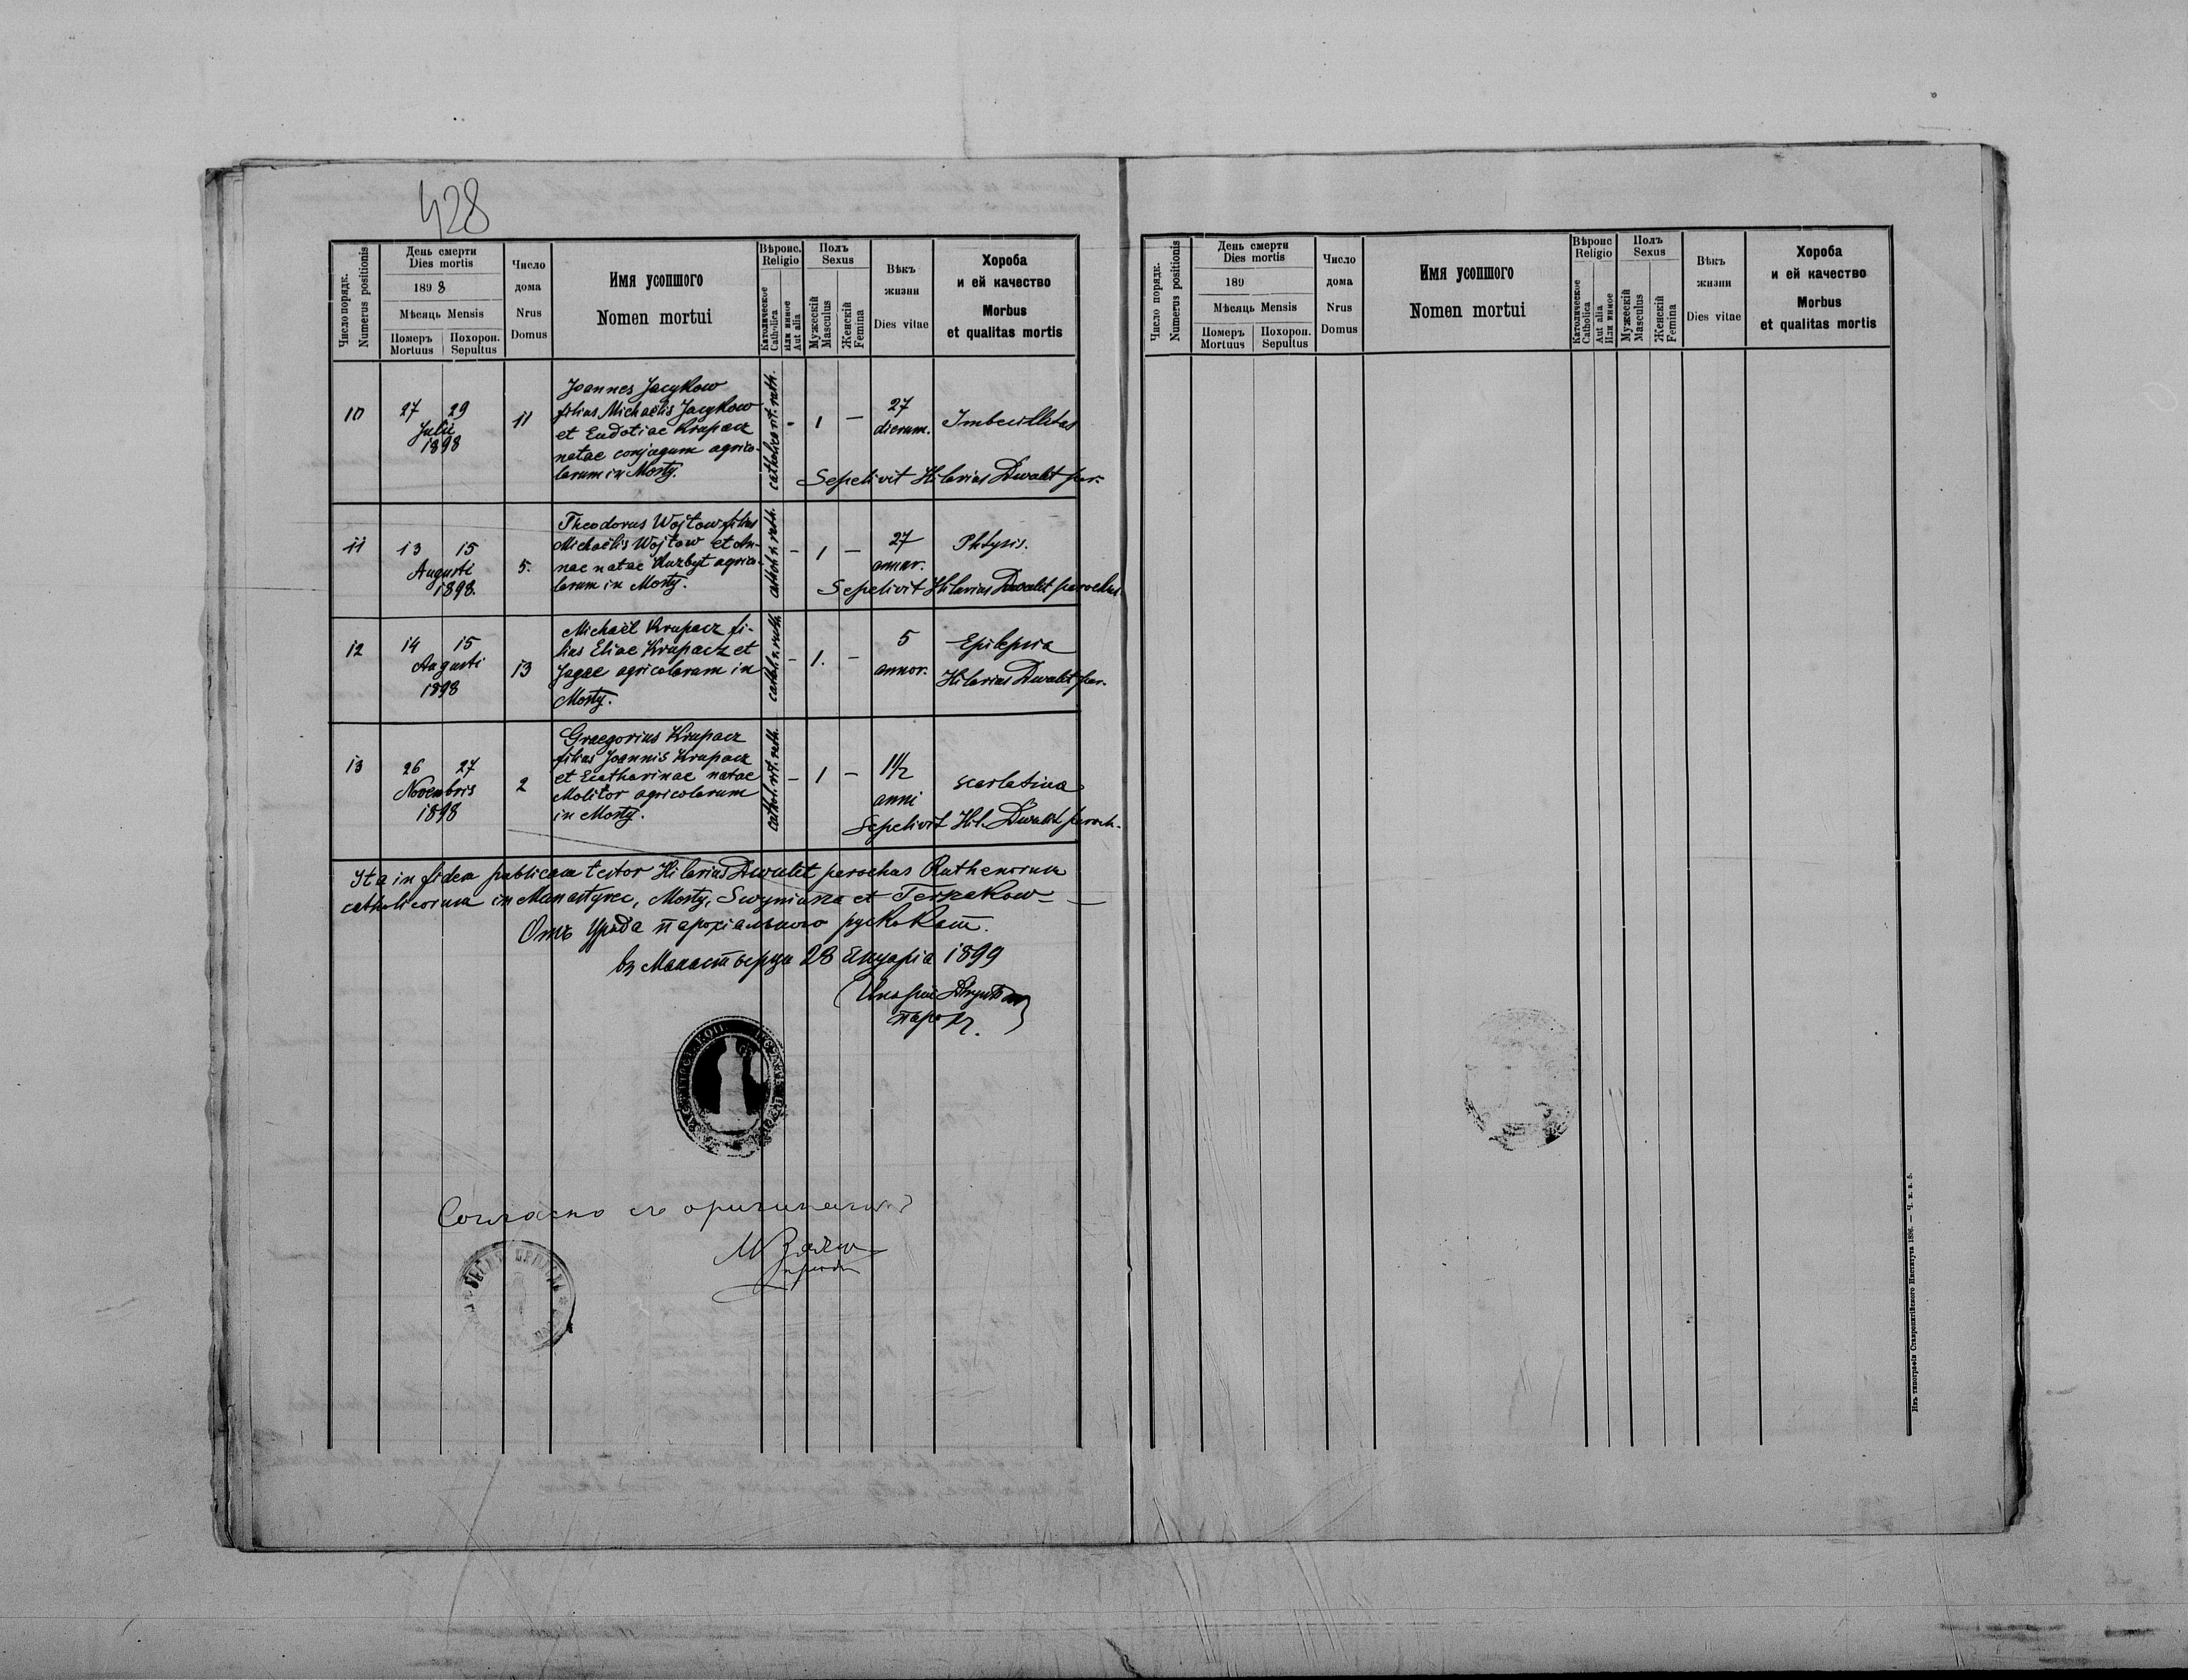 428
Число порядк.
Numerus positionis
День смерти
Dies mortis
1898
Мѣсяць Mensis
Померъ
Mortuus
Похорон.
Sepultus
Число
дома
Nrus
Domus
Имя усопшого
Nomen mortui
Вѣроис.
Religio
Католическое
Catholica
Или инное
Aut alia
Полъ
Sexus
Мужескій
Masculus
Женскій
Femina
Вѣкъ
жизни
Dies vitae
Хороба
и ей качество
Morbus
et qualitas mortis
10
27 29
Julii
1898
11
Joannes Jacykow
filius Michaëlis Jacykow
et Eudotiae Krupacz
natae conjugum agrico-
larum in Mosty.
catholica rit. ruth.
-
1
—
27
dierum.
Imbecillitas
Sepelivit Hilarius Dwulit par.
11
13 15
Augusti
1898.
5.
Theodorus Wojtow filius
Michaëlis Wojtow et An-
nae natae Kuzbyt agrico-
larum in Mosty.
cathol. r. ruth.
—
1
—
27
annor.
Phtysis.
Sepelivit Hilarius Dwulit parochus.
12
14 15
Augusti
1898
13
Michaël Krupacz fi-
lius Eliae Krupacz et
Jagae agricolarum in
Mosty.
cathl. r. ruth.
—
1.
—
5
annor.
Epilepsia
Hilarius Dwulit par.
13
26 27
Novembris
1898
2
Graegorius Krupacz
filius Joannis Krupacz
et Ecatharinae natae
Molitor agricolarum
in Mosty.
cathol. rit. ruth.
—
1
—
1 1/2
anni
scarlatina
Sepelivit Hil. Dwulit paroch.
Ita in fidem publicam testor Hilarius Dwulit parochus Ruthenorum
catholicorum in Manastyrec, Mosty, Susyniusza et Terszakow —
Отъ Уряда парохіяльного руско кат.
въ Манастырци 28 Януарія 1899
Иларій Двулѣт
парох.
Согласно съ оригиналомъ
Число порядк.
Numerus positionis
День смерти
Dies mortis
189
Мѣсяць Mensis
Померъ
Mortuus
Похорон.
Sepultus
Число
дома
Nrus
Domus
Имя усопшого
Nomen mortui
Вѣроис
Religio
Католическое
Catholica
Aut alia
Или инное
Полъ
Sexus
Мужескій
Masculus
Женскій
Femina
Вѣкъ
жизни
Dies vitae
Хороба
и ей качество
Morbus
et qualitas mortis
Изъ типографіи Ставропигійского Института 1896. — Ч. к. з. 5.